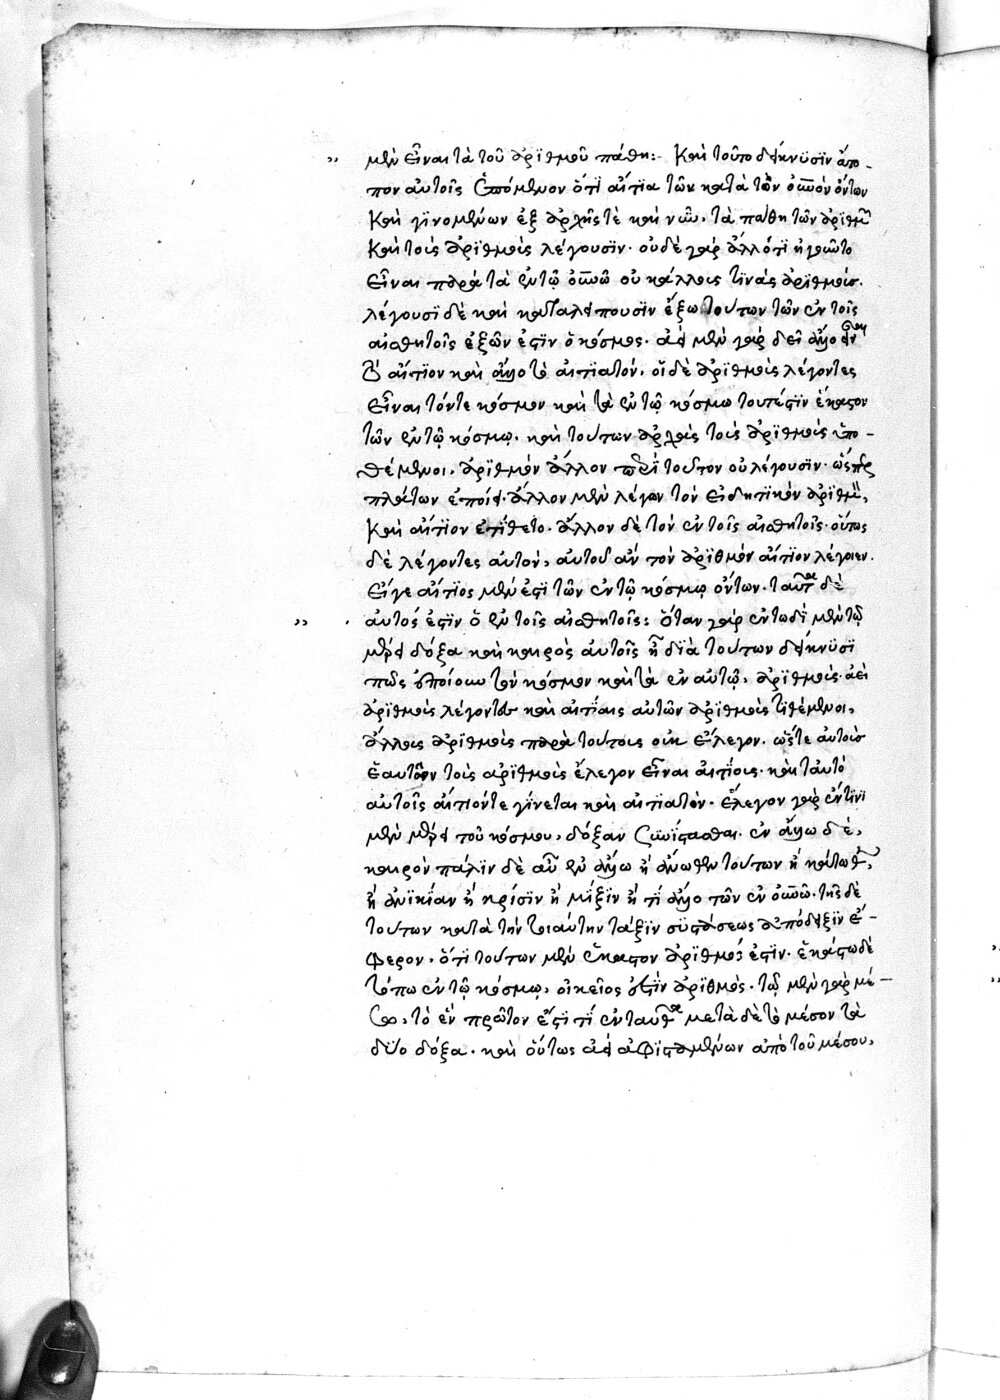 μὲν εἶναι τὰ τοῦ ἀρϊθμοῦ πάθη:- Καὶ τοῦτο δείκνυσϊν ἄτο-
πον αὐτοῖς ἑπόμενον ὅτϊ αἴτϊα τῶν κατὰ τὸν οὐρανὸν ὄντων
Καὶ γϊνομένων ἐξ ἀρχῆς τὲ καὶ νῦν· τὰ πάθη τῶν ἀρϊθμῶν
Καὶ τοὺς ἀρϊθμοὺς λέγουσϊν· οὐδὲ γὰρ ἄλλό τϊ ἡγοῦντο
εἶναι παρὰ τὰ ἐν τῷ οὐρανῷ οὐκ ἄλλους τϊνὰς ἀρϊθμούς.
λέγουσϊ δὲ καὶ καταλείπουσϊν ἔξω τούτων τῶν ἐν τοῖς
αἰσθητοῖς ἐξ ὧν ἐστϊν ὁ κόσμος· ἀεὶ μὲν γὰρ δεῖ ἄλλο εἶναι
τὸ αἴτϊον καὶ ἄλλο τὸ αἰτϊατόν· οἱ δὲ ἀρϊθμοὺς λέγοντες
εἶναι τόντε κόσμον καὶ τὰ ἐν τῷ κόσμω τουτέστϊν ἕκαστον
τῶν ἐν τῷ κόσμῳ· καὶ τούτων ἀρχὰς τοὺς ἀρϊθμοὺς ὑπο-
θέμενοι, ἀρϊθμὸν ἄλλον παρὰ τοῦτον οὐ λέγουσϊν· ὥσπερ
πλάτων ἐποίει· ἄλλον μὲν λέγων τὸν εἰδητϊκὸν ἀρϊθμὸν,
Καὶ αἴτϊον ἐτίθετο· ἄλλον δὲ τὸν ἐν τοῖς αἰσθητοῖς· οὕτως
δὲ λέγοντες αὐτὸν, αὐτοῦ ἂν τὸν ἀρϊθμὸν αἴτϊον λέγοιεν.
εἴγε αἴτϊος μὲν ἐστϊ τῶν ἐν τῷ κόσμῳ ὄντων· ταῦτα δὲ
αὐτός ἐστϊν ὁ ἐν τοῖς αἰσθητοῖς: ὅταν γὰρ ἐν τωδὶ μὲν τῷ
μέρει δόξα καὶ καιρὸς αὐτοῖς ἦ διὰ τούτων δείκνυσϊ
πῶς ἐποίουν τὸν κόσμον καὶ τὰ ἐν αὐτῷ, ἀρϊθμοὺς· ἀεὶ
ἀρϊθμοὺς λέγοντες καὶ αἰτίαις αὐτῶν ἀρϊθμοὺς τϊθέμενοι,
ἄλλους ἀρϊθμοὺς παρὰ τούτους οὐκ ἔλεγον· ὥστε αὐτοὺς
ἑαυτῶν τοὺς ἀρϊθμοὺς ἔλεγον εἶναι αἰτίους· καὶ ταὐτὸ
αὐτοῖς αἴτιόντε γίνεται καὶ αἰτϊατὸν· ἔλεγον γὰρ ἔν τϊνϊ
μὲν μέρει τοῦ κόσμου, δόξαν συνίστασθαι· ἐν ἄλλω δὲ,
καιρὸν πάλϊν δὲ αὖ ἐν ἄλλω ἢ ἄνωθεν τούτων ἢ κάτωθεν,
ἢ ἀνϊκίαν ἢ κρίσϊν ἢ μίξϊν ἢ τὶ ἄλλο τῶν ἐν οὐρανῷ· τῆς δὲ
τούτων κατὰ τὴν τοιαύτην τάξϊν συστάσεως ἀπόδειξϊν ἔ-
φερον· ὅτϊ τούτων μὲν ἕκαστον ἀρϊθμός ἐστϊν· ἑκάστω δὲ
τόπω ἐν τῷ κόσμῳ, οἰκεῖος ἐστὶν ἀρϊθμὸς· τῷ μὲν γὰρ μέ-
σω, τὸ ἓν πρῶτον ἐστϊ τί ἐνταῦθα μετὰ δὲ τὸ μέσον τὰ
δύο δόξα· καὶ οὕτως ἀεὶ ἀφϊσταμένων ἀπὸ τοῦ μέσου,